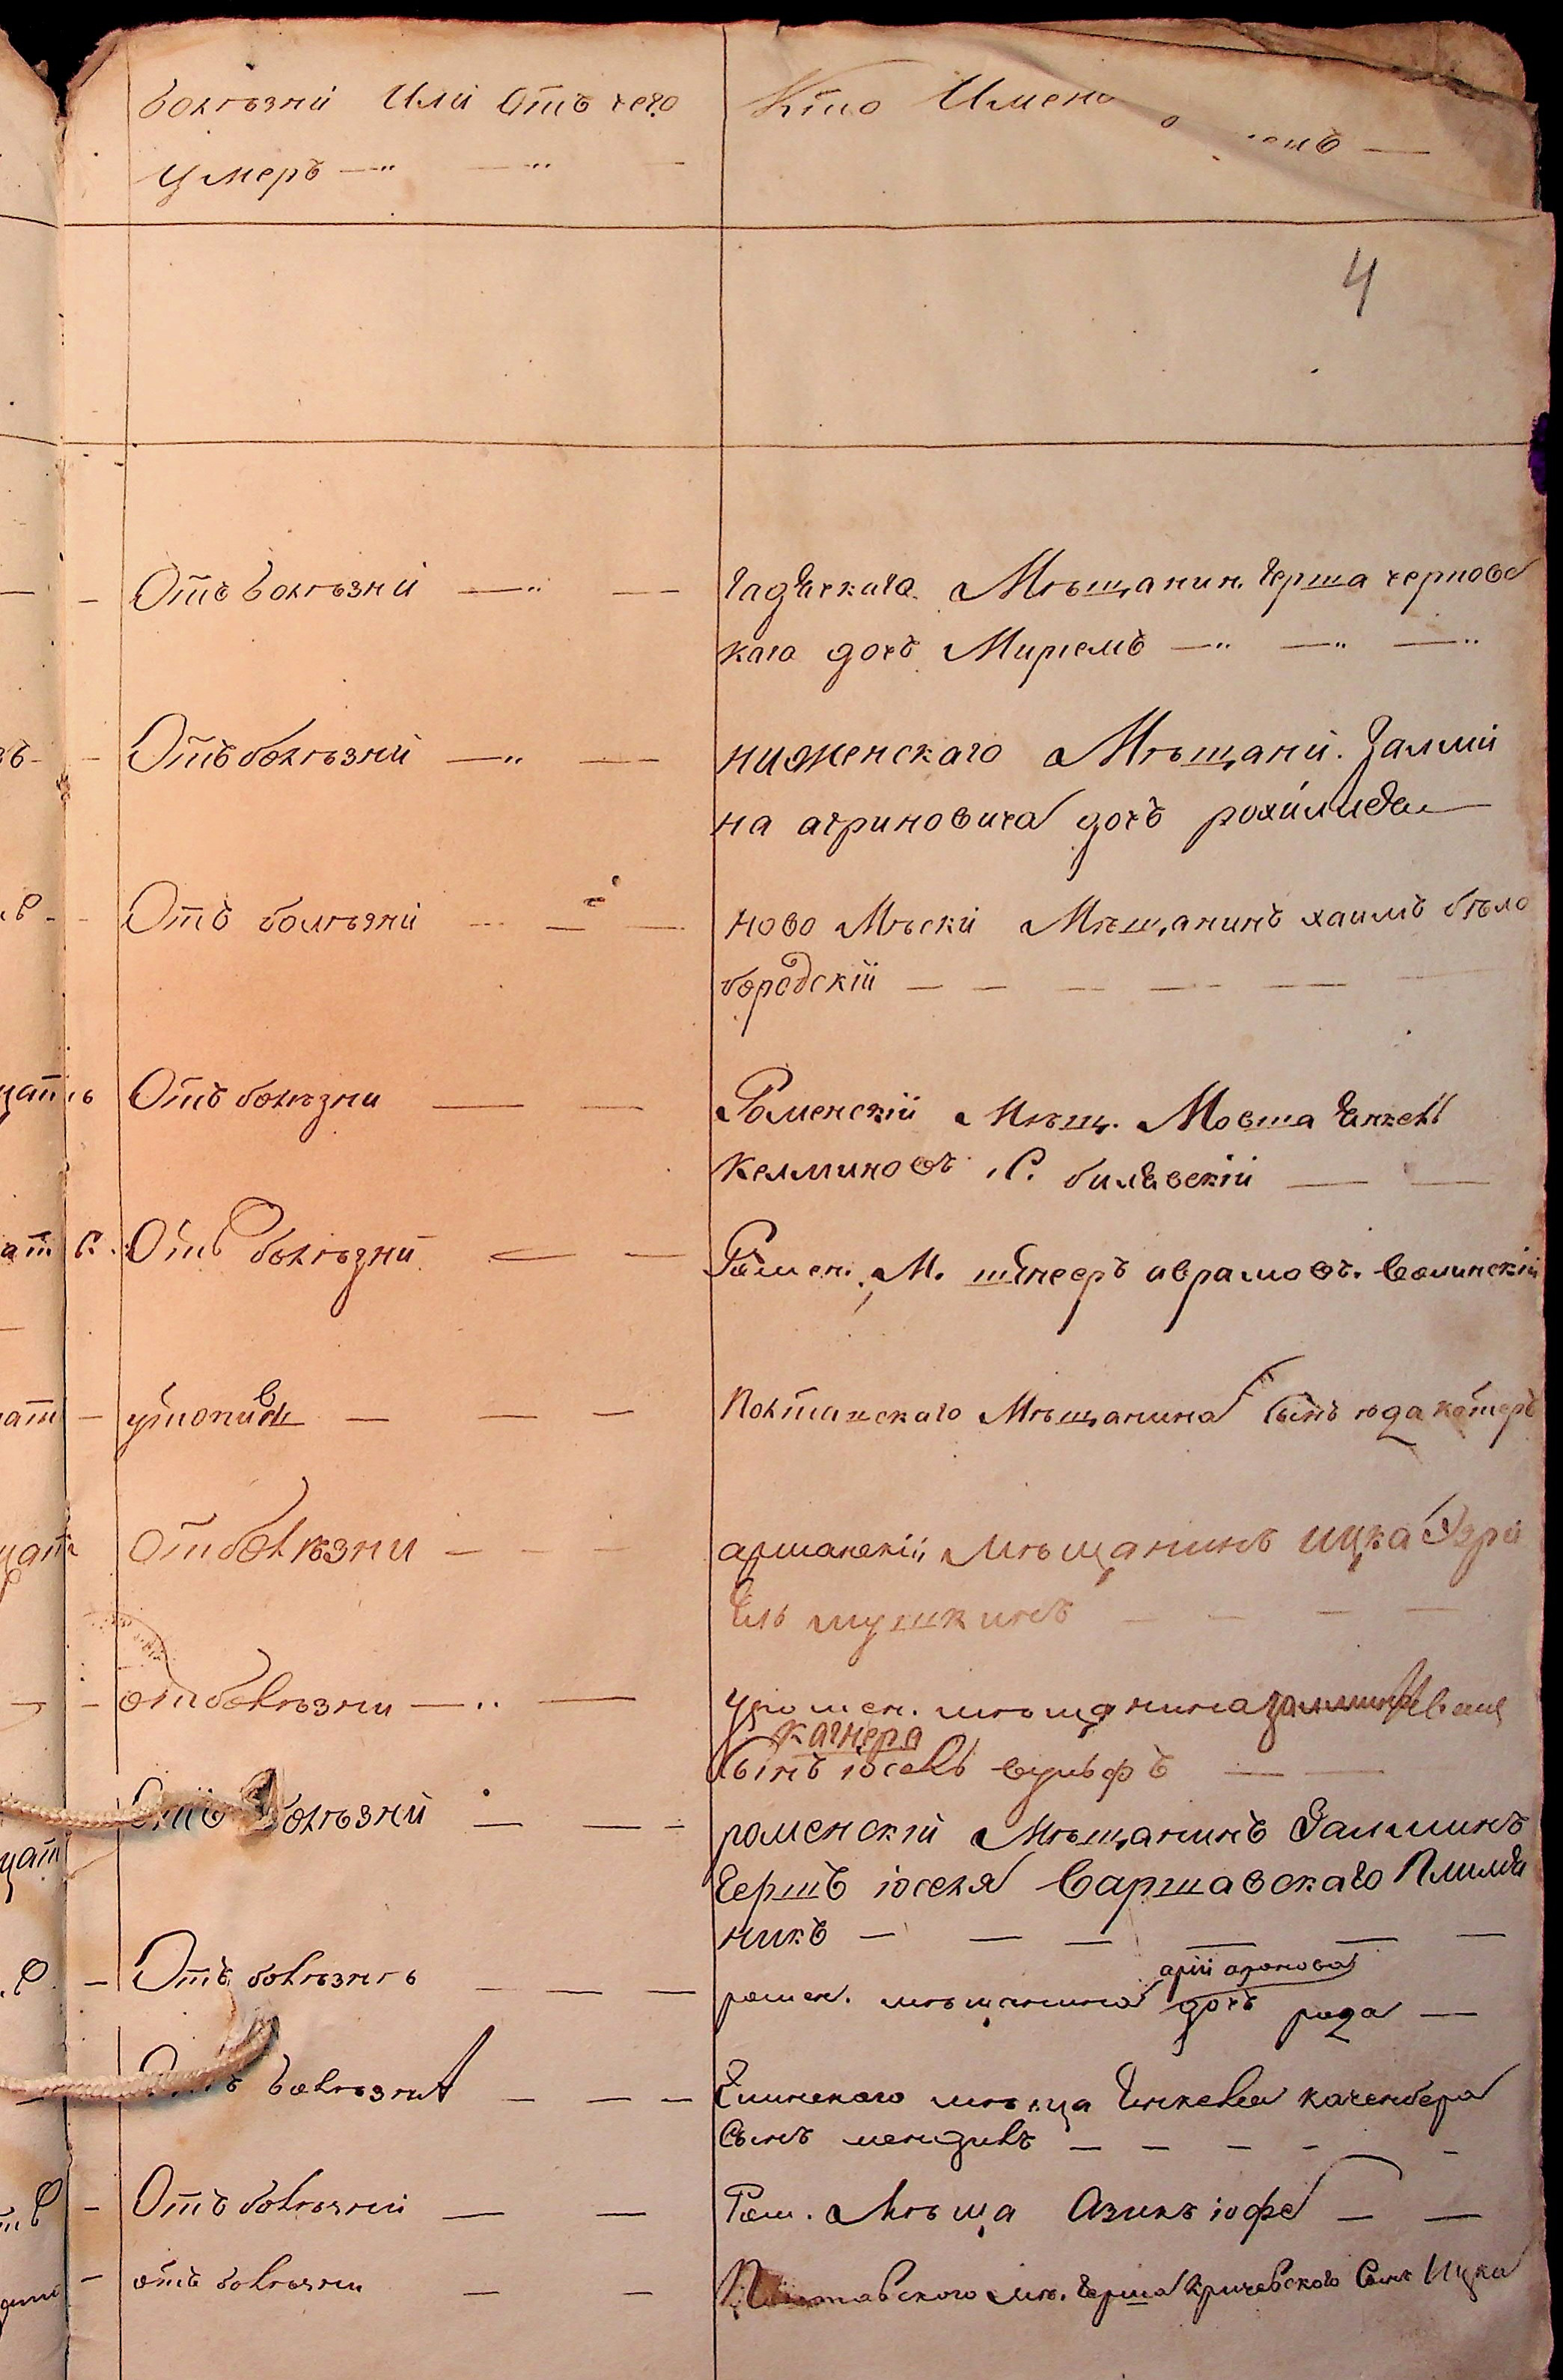 болѣзни Или Отъ чего
умеръ
Кто Имено
4
Отъ болѣзни
гадечкаго Мѣщанин. Герша чернобе
каго дочъ Мириемъ
Отъ болѣзни
ниженскаго Мѣщани. Залми
на агриновича дочъ
Отъ болѣзни
ново Мѣски Мѣщанинъ хаимъ бѣло
бородскій
Отъ болѣзни
Роменскій Мѣщ. Мовша Янкель
Келминовъ С. билевскій
Отъ болѣзни
Ромен. М. шнееръ аврамовъ. волинскій
утопив
Полтавскаго Мѣщанина сынъ юда
Отъ болѣзни
мѣщанинъ ицка Эзри
ель мушкинъ
отъ болѣзни
уромен. мѣщанина
кагнера
сынъ іосель вульфъ
Отъ болѣзни
роменскій Мѣщанинъ Залминъ
Гершъ іоселя Варшавскаго Племе
никъ
Отъ болѣзнѣ
арій аронова
ромен. мѣщанина дочъ рода
Отъ болѣзни
мѣща Янкеля каченбера
Сынъ мендиль
Отъ болѣзни
Ром. Мѣща Азикъ іофе
отъ болѣзни
Полтавского мѣ. Герша Кричевского Сынъ Ицка